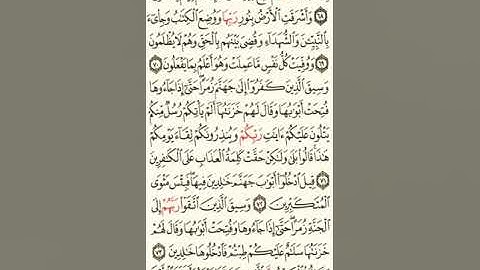 ٦٨ وَأَشْرَقَتِ الْأَرْضُ بِنُورِ رَبِّهَا وَوُضِعَ الْكِتَٰبُ وَجِاْىٓءَ
بِالنَّبِيِّـۧنَ وَالشُّهَدَآءِ وَقُضِىَ بَيْنَهُم بِالْحَقِّ وَهُمْ لَا يُظْلَمُونَ
٦٩ وَوُفِّيَتْ كُلُّ نَفْسٍ مَّا عَمِلَتْ وَهُوَ أَعْلَمُ بِمَا يَفْعَلُونَ ٧٠
وَسِيقَ الَّذِينَ كَفَرُوٓا۟ إِلَىٰ جَهَنَّمَ زُمَرًا حَتَّىٰٓ إِذَا جَآءُوهَا
فُتِحَتْ أَبْوَٰبُهَا وَقَالَ لَهُمْ خَزَنَتُهَآ أَلَمْ يَأْتِكُمْ رُسُلٌ مِّنكُمْ
يَتْلُونَ عَلَيْكُمْ ءَايَٰتِ رَبِّكُمْ وَيُنذِرُونَكُمْ لِقَآءَ يَوْمِكُمْ
هَٰذَا قَالُوا۟ بَلَىٰ وَلَٰكِنْ حَقَّتْ كَلِمَةُ الْعَذَابِ عَلَى الْكَٰفِرِينَ
٧١ قِيلَ ادْخُلُوٓا۟ أَبْوَٰبَ جَهَنَّمَ خَٰلِدِينَ فِيهَا فَبِئْسَ مَثْوَى
الْمُتَكَبِّرِينَ ٧٢ وَسِيقَ الَّذِينَ اتَّقَوْا۟ رَبَّهُمْ إِلَى
الْجَنَّةِ زُمَرًا حَتَّىٰٓ إِذَا جَآءُوهَا وَفُتِحَتْ أَبْوَٰبُهَا وَقَالَ لَهُمْ
خَزَنَتُهَا سَلَٰمٌ عَلَيْكُمْ طِبْتُمْ فَادْخُلُوهَا خَٰلِدِينَ ٧٣